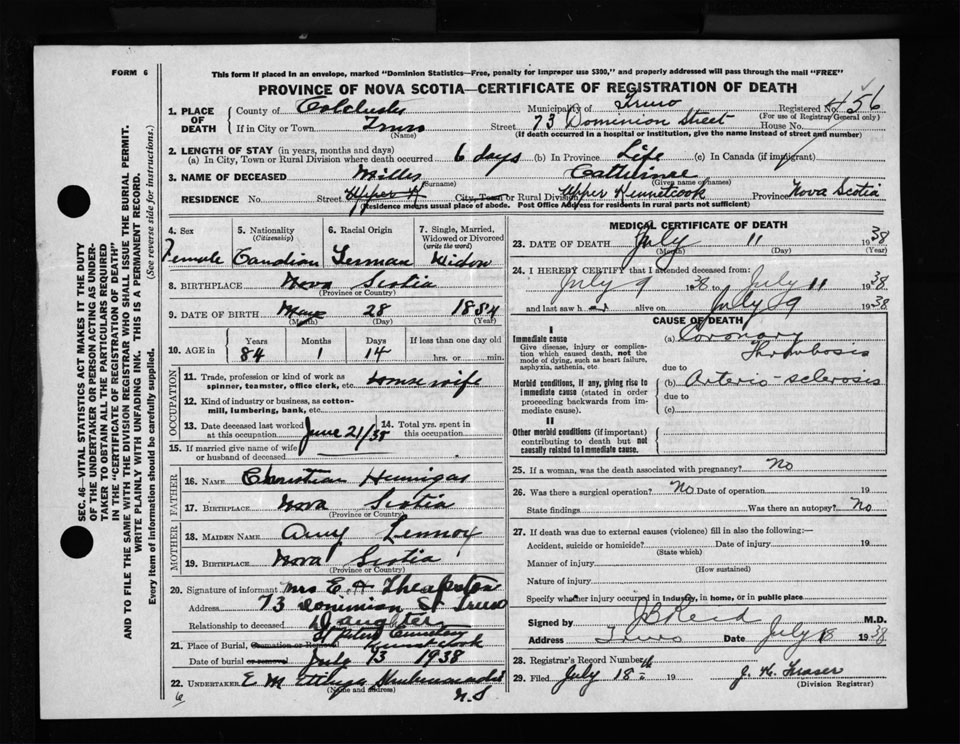 FORM 6
This form if placed in an envelope, marked "Dominion Statistics—Free, penalty for improper use $300," and properly addressed will pass through the mail "FREE"
PROVINCE OF NOVA SCOTIA—CERTIFICATE OF REGISTRATION OF DEATH
SEC. 46—VITAL STATISTICS ACT MAKES IT THE DUTY
OF THE UNDERTAKER OR PERSON ACTING AS UNDER-
TAKER TO OBTAIN ALL THE PARTICULARS REQUIRED
IN THE "CERTIFICATE OF REGISTRATION OF DEATH"
AND TO FILE THE SAME WITH THE DIVISION REGISTRAR WHO SHALL ISSUE THE BURIAL PERMIT.
WRITE PLAINLY WITH UNFADING INK. THIS IS A PERMANENT RECORD.
Every item of information should be carefully supplied. (See reverse side for instructions.)
1. PLACE OF DEATH County of Colchester Municipality of Truro Registered No. 456
(For use of Registrar General only)
If in City or Town Truro Street 73 Dominion Street House No.
(Name) (If death occurred in a hospital or institution, give the name instead of street and number)
2. LENGTH OF STAY (in years, months and days)
(a) In City, Town or Rural Division where death occurred 6 days (b) In Province Life (c) In Canada (if immigrant)
3. NAME OF DECEASED Miller Catherine
(Surname) (Given name or names)
RESIDENCE No. Street Upper K City, Town or Rural Division Upper Kennetcook Province Nova Scotia
(Residence means usual place of abode. Post Office Address for residents in rural parts not sufficient)
4. Sex 5. Nationality (Citizenship) 6. Racial Origin 7. Single, Married, Widowed or Divorced (write the word)
Female Canadian German Widow
8. BIRTHPLACE Nova Scotia
(Province or Country)
9. DATE OF BIRTH May 28 1854
(Month) (Day) (Year)
10. AGE in Years Months Days If less than one day old
84 1 14 hrs. or min.
OCCUPATION
11. Trade, profession or kind of work as spinner, teamster, office clerk, etc. housewife
12. Kind of industry or business, as cotton-mill, lumbering, bank, etc.
13. Date deceased last worked at this occupation June 21/38 14. Total yrs. spent in this occupation
15. If married give name of wife or husband of deceased
FATHER
16. NAME Christian Hennigar
17. BIRTHPLACE Nova Scotia
(Province or Country)
MOTHER
18. MAIDEN NAME Amy Lennox
19. BIRTHPLACE Nova Scotia
(Province or Country)
20. Signature of informant Mrs E. H
Address 73 Dominion St Truro
Relationship to deceased Daughter
21. Place of Burial, Cremation or Removal Cemetery
Date of burial or removal July 13 1938
22. UNDERTAKER E M Shubenacadie
(Name and address) N.S
6
MEDICAL CERTIFICATE OF DEATH
23. DATE OF DEATH July 11 1938
(Month) (Day) (Year)
24. I HEREBY CERTIFY that I attended deceased from:
July 9 1938 to July 11 1938
and last saw h er alive on July 9 1938
CAUSE OF DEATH
I
Immediate cause
Give disease, injury or complication which caused death, not the mode of dying, such as heart failure, asphyxia, asthenia, etc.
(a) Coronary Thrombosis
due to
Morbid conditions, if any, giving rise to immediate cause (stated in order proceeding backwards from immediate cause).
(b) Arterio-sclerosis
due to
(c)
II
Other morbid conditions (if important) contributing to death but not causally related to immediate cause.
25. If a woman, was the death associated with pregnancy? No
26. Was there a surgical operation? No Date of operation 19
State findings Was there an autopsy? No
27. If death was due to external causes (violence) fill in also the following:—
Accident, suicide or homicide? Date of injury 19
(State which)
Manner of injury
(How sustained)
Nature of injury
Specify whether injury occurred in industry, in home, or in public place
Signed by J B Reid M.D.
Address Truro Date July 18 1938
28. Registrar's Record Number
29. Filed July 18th 19 J. K. Fraser
(Division Registrar)